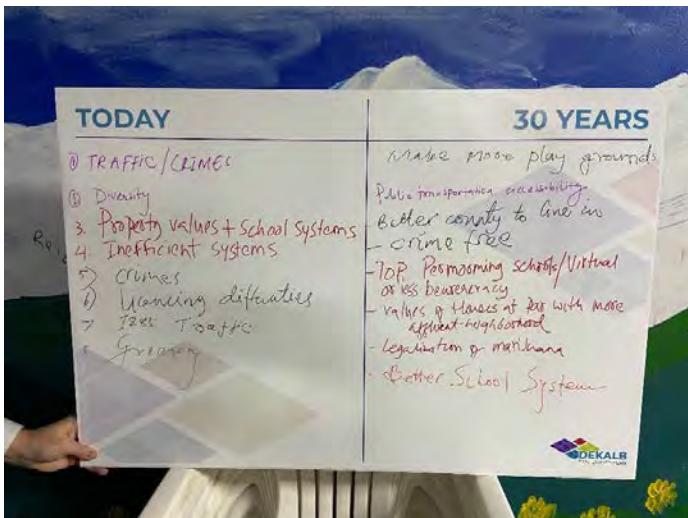 TODAY
① TRAFFIC/CRIMES
② Diversity
3. Property values + School systems
4. Inefficient systems
5) crimes
6)
7 Traffic
30 YEARS
Make more play grounds
Public transportation accessibility
Better county to live in
- crime free
- TOP Permooming schools/Virtual
or less beurencracy
- values of Houses at par with more
affluent neighborhood
- Legalization of marihuana
- Better School System
DEKALB